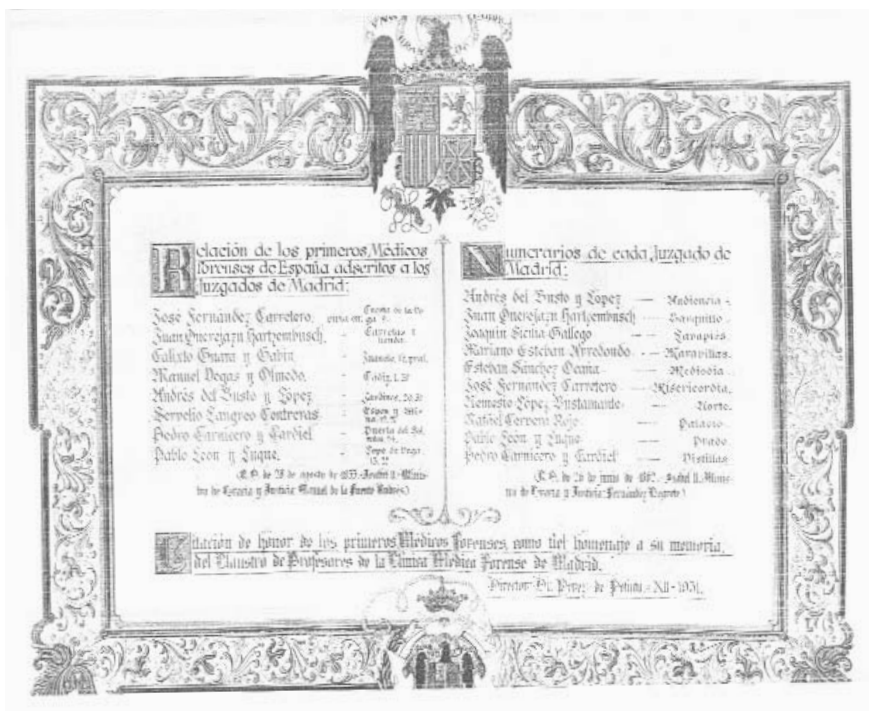 Relación de los primeros Médicos
forenses de España adscritos a los
Juzgados de Madrid:
José Fernández Carretero.
Juan Querejazu Hartzembusch. - Carretas
tienda.
Calixto Guara y Gabín -
Manuel Vegas y Olmedo. - Cádiz, 1, 3º
Andrés del Busto y López - Jardines, 20, 3º
Servelio Langreo Contreras - Espoz y Mi-
na, 17, 2º
Pedro Carnicero y Cardiel - Puerta del Sol
Pablo León y Luque. - Lope de Vega
(R.D. de de agosto de Isabel II.-Minis-
tro de Gracia y Justicia: Manuel de la Fuente Andrés)
Numerarios de cada Juzgado de
Madrid:
Andrés del Busto y López — Audiencia.
Juan Querejazu Hartzembusch — Barquillo.
Joaquín Sicilia Gallego — Lavapiés.
Mariano Esteban Arredondo — Maravillas.
Esteban Sánchez Ocaña — Mediodía
José Fernández Carretero — Misericordia.
Nemesio López Bustamante — Norte.
Rafael Cervera Royo — Palacio.
Pablo León y Luque — Prado.
Pedro Carnicero y Cardiel — Vistillas.
(R.D. de de junio de 1862.-Isabel II.-Minis-
tro de Gracia y Justicia: Fernández Negrete)
Citación de honor de los primeros Médicos Forenses, como fiel homenaje a su memoria,
del Claustro de Profesores de la Clínica Médico Forense de Madrid.
Director: Dr. Pérez de Petinto.-XII-1951.